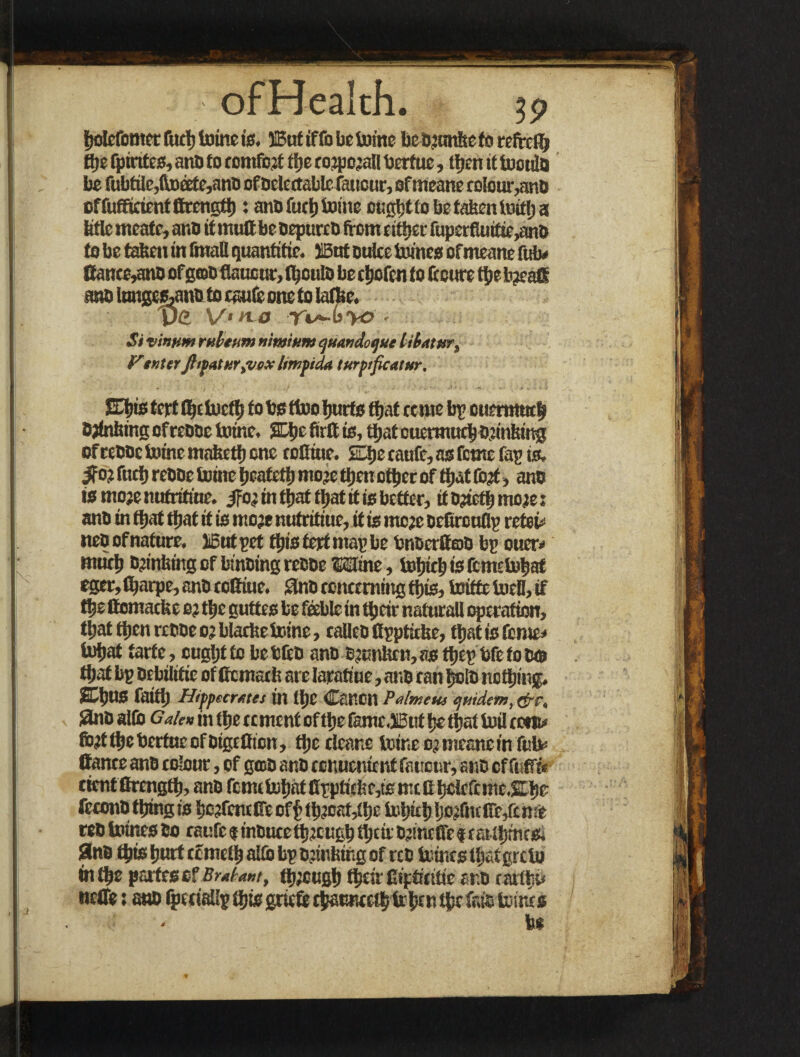 of Health. 39
holesomer such wine is. But if so be wine be drunke to refresh
the spirites, and to comfort the corporall vertue, then it would
be subtile, sweete, and of delectable sauour, of meane colour, and
of sufficient strength: and such wine ought to be taken with a
litle meate, and it must be depured from either superfluitie, and
to be taken in small quantitie. But dulce wines of meane sub-
stance, and of good flauour, should be chosen to scoure the breast
and lunges, and to cause one to laske.
De Vino Rubro
Si vinum rubeum nimium quandoque libatur,
Venter stipatur, vox limpida turpificatur.
This text sheweth to vs two hurts that come by ouermuch
drinking of redde wine. The first is, that ouermuch drinking
of redde wine maketh one costiue. The cause, as some say is.
For such redde wine heateth more then other of that sort, and
is more nutritiue. For in that that it is hetter, it drieth more:
and in that that it is more nutritiue, it is more desirously retei-
ned of nature. But yet this text may be vnderstood by ouer-
much drinking of binding redde Wine, which is somewhat
eger, sharpe, and costiue. And concerning this, witte well, if
the stomacke or the guttes be feeble in their naturall operation,
that then redde or blacke wine, called stypticke, that is some-
what tarte, ought to be vsed and drunken, as they vse to doo
that by debilitie of stomach are laxatiue, and can hold nothing.
Thus saith Hippocrates in the Canon Palmeus quidem, &c.
And also Galen in the coment of the same. But he that wil com-
fort the vertue of digestion, the cleane wine or meane in sub-
stance and colour, of good and conuenient sauour, and of suffi-
cient strength, and somewhat stypticke, is most holesome. The
second thing is horsenesse of ye throat, the which horsnesse, some
red wines do cause & induce through their drinesse & earthines.
And this hurt cometh also by drinking of red wines that grew
in the partes of Brabant, through their stipticitie and earthi-
nesse: and specially this griefe chaunceth when the said wines
be